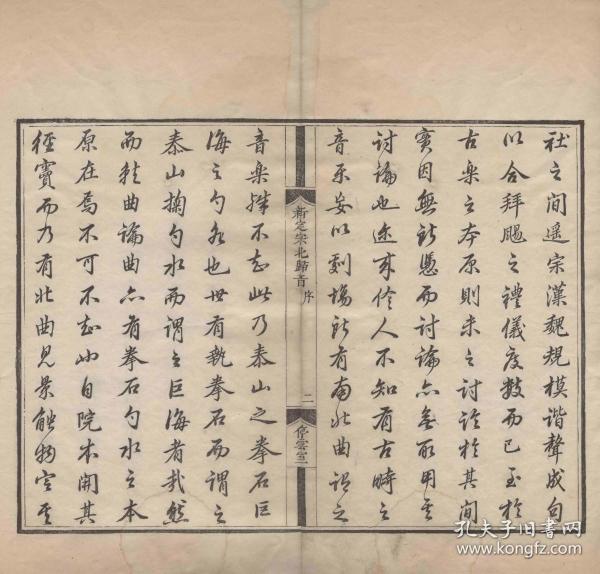 社之间遥宗漢魏規模谐聲成句
以合拜颺之禮儀度数而已至於
古楽之本原則未之討論於其間
實因無所憑而討論亦無所用其
討論也迩来伶人不知有古時之
音乐妄以剧塲所有南北曲谓之
新定宗北歸音 序 二
停雲室
音楽殊不知此乃泰山之拳石巨
海之勺水也世有執拳石而谓之
泰山掬勺水而谓之巨海者哉然
而就曲論曲亦有拳石勺水之本
原在焉不可不知也自院本開其
徑竇而乃有北曲見景觸物宫其
孔夫子旧书网
www.kongfz.com